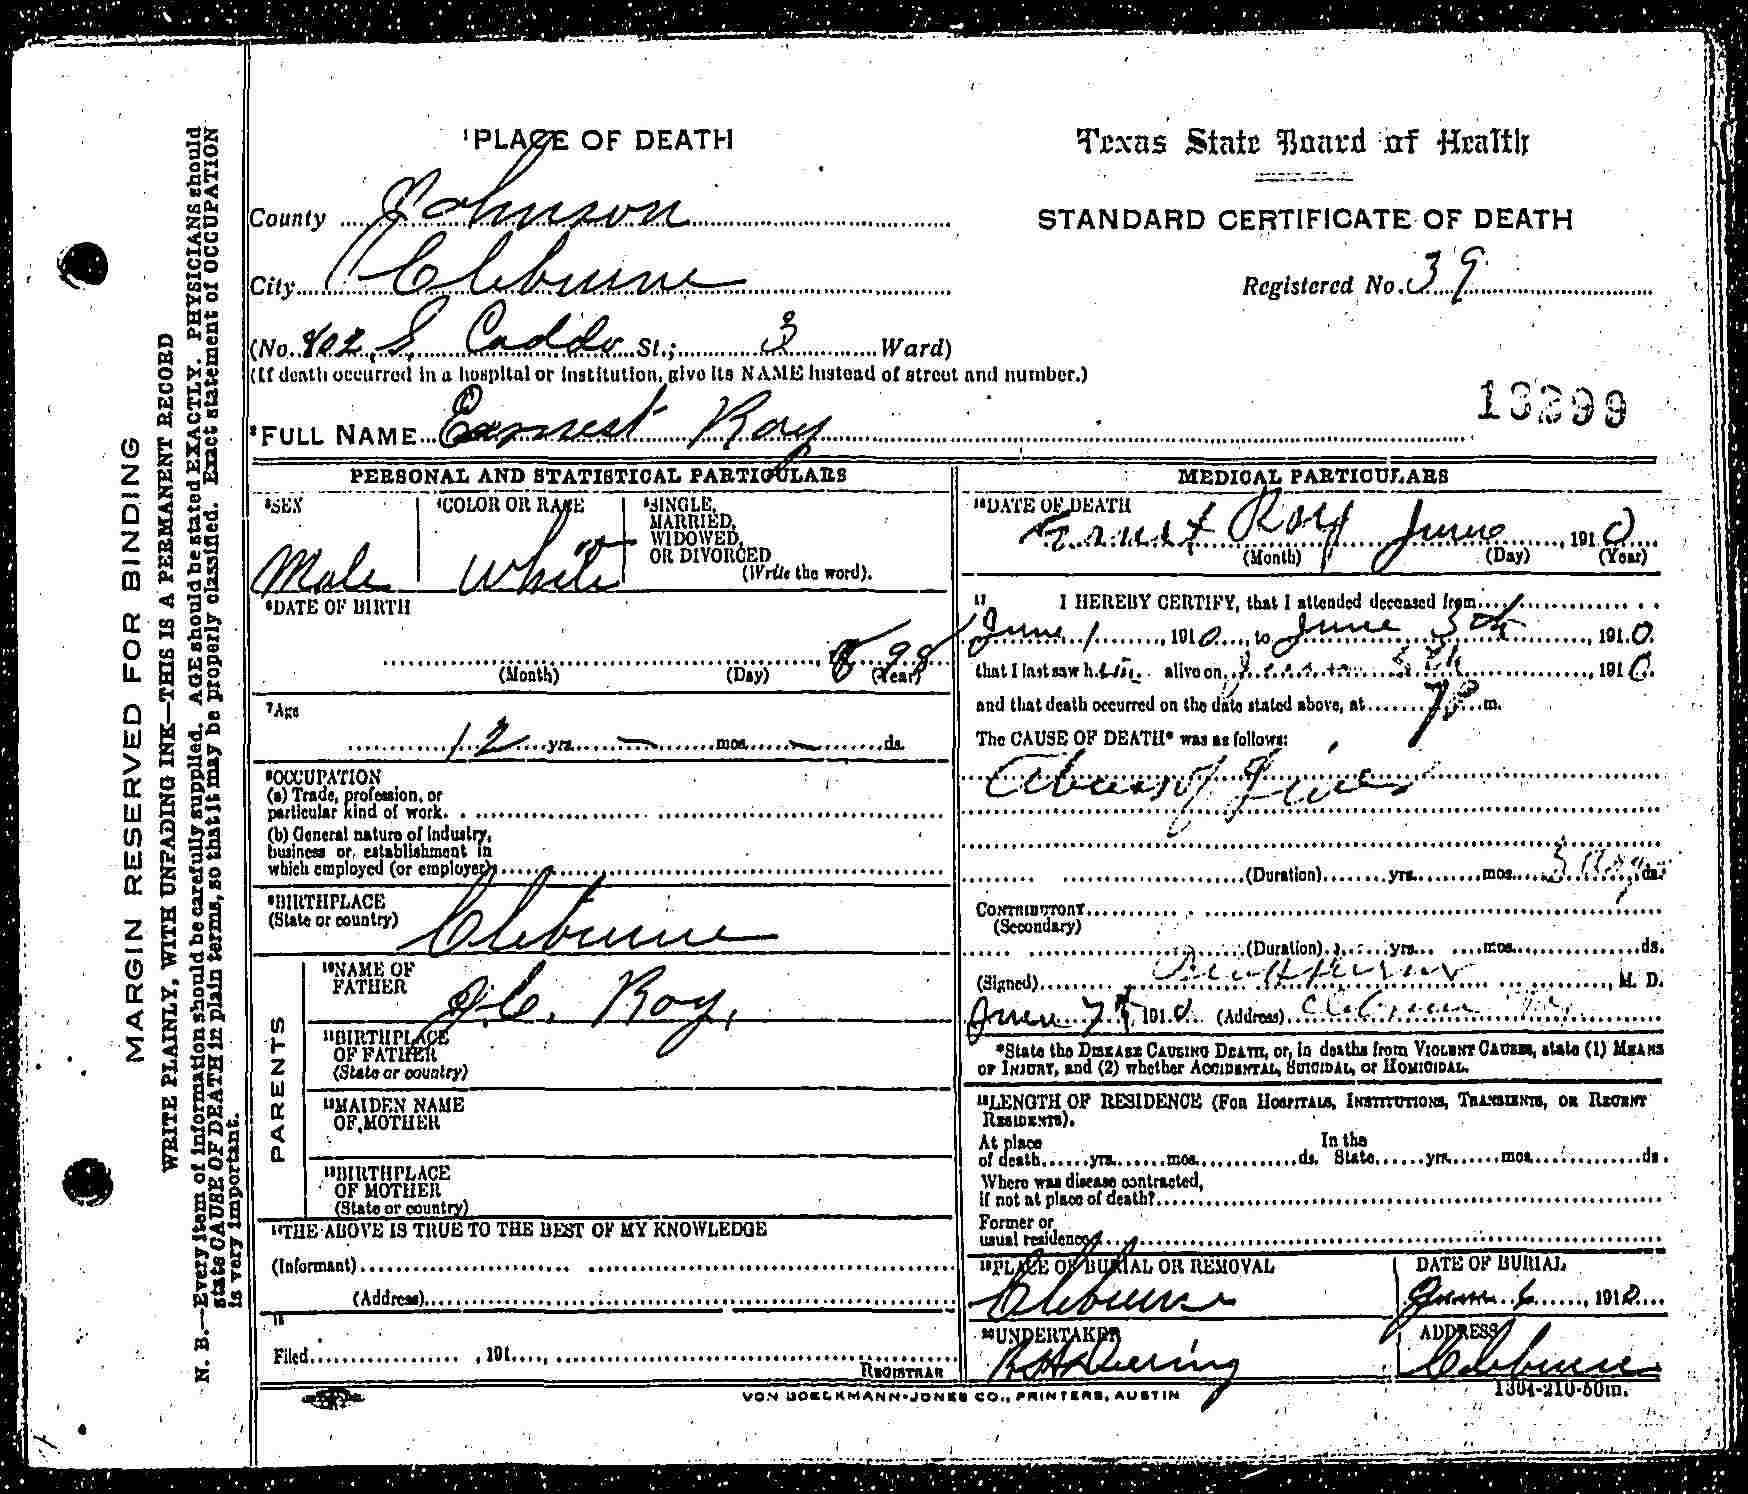 MARGIN RESERVED FOR BINDING
WRITE PLAINLY, WITH UNFADING INK—THIS IS A PERMANENT RECORD
N. B.—Every item of information should be carefully supplied. AGE should be stated EXACTLY. PHYSICIANS should
state CAUSE OF DEATH in plain terms, so that it may be properly classified. Exact statement of OCCUPATION
is very important.
1 PLACE OF DEATH
County Johnson
City Cleburne
(No. 802 S. Caddo St.; 3 Ward)
(If death occurred in a hospital or institution, give its NAME instead of street and number.)
Texas State Board of Health
STANDARD CERTIFICATE OF DEATH
Registered No. 39
13299
2 FULL NAME Earnest Roy
PERSONAL AND STATISTICAL PARTICULARS
3 SEX
Male
4 COLOR OR RACE
White
5 SINGLE,
MARRIED,
WIDOWED,
OR DIVORCED
(Write the word).
6 DATE OF BIRTH
898
(Month) (Day) (Year)
7 Age
12 yrs. – mos. – ds.
8 OCCUPATION
(a) Trade, profession, or
particular kind of work.
(b) General nature of industry,
business or establishment in
which employed (or employer)
9 BIRTHPLACE
(State or country)
Cleburne
PARENTS
10 NAME OF
FATHER
J.C. Roy,
11 BIRTHPLACE
OF FATHER
(State or country)
12 MAIDEN NAME
OF MOTHER
13 BIRTHPLACE
OF MOTHER
(State or country)
14 THE ABOVE IS TRUE TO THE BEST OF MY KNOWLEDGE
(Informant)
(Address)
15
Filed , 191
REGISTRAR
MEDICAL PARTICULARS
16 DATE OF DEATH
Ernest Roy June 1910
(Month) (Day) (Year)
17 I HEREBY CERTIFY, that I attended deceased from
June 1, 1910, to June 5th, 1910.
that I last saw him alive on June 5th 1910.
and that death occurred on the date stated above, at 7P m.
The CAUSE OF DEATH* was as follows:
Abcess of Liver
(Duration) yrs. mos. 5 Days ds.
CONTRIBUTORY
(Secondary)
(Duration) yrs. mos. ds.
(Signed) M. D.
June 7th 1910 (Address) Cleburne
*State the DISEASE CAUSING DEATH, or, in deaths from VIOLENT CAUSES, state (1) MEANS
OF INJURY, and (2) whether ACCIDENTAL, SUICIDAL, or HOMICIDAL.
18 LENGTH OF RESIDENCE (FOR HOSPITALS, INSTITUTIONS, TRANSIENTS, OR RECENT
RESIDENTS).
At place In the
of death yrs. mos. ds. State yrs. mos. ds.
Where was disease contracted,
if not at place of death?
Former or
usual residence
19 PLACE OF BURIAL OR REMOVAL
Cleburne
DATE OF BURIAL
June 6, 1910
20 UNDERTAKER
Deering
ADDRESS
Cleburne
VON BOECKMANN-JONES CO., PRINTERS, AUSTIN
1304-210-50m.